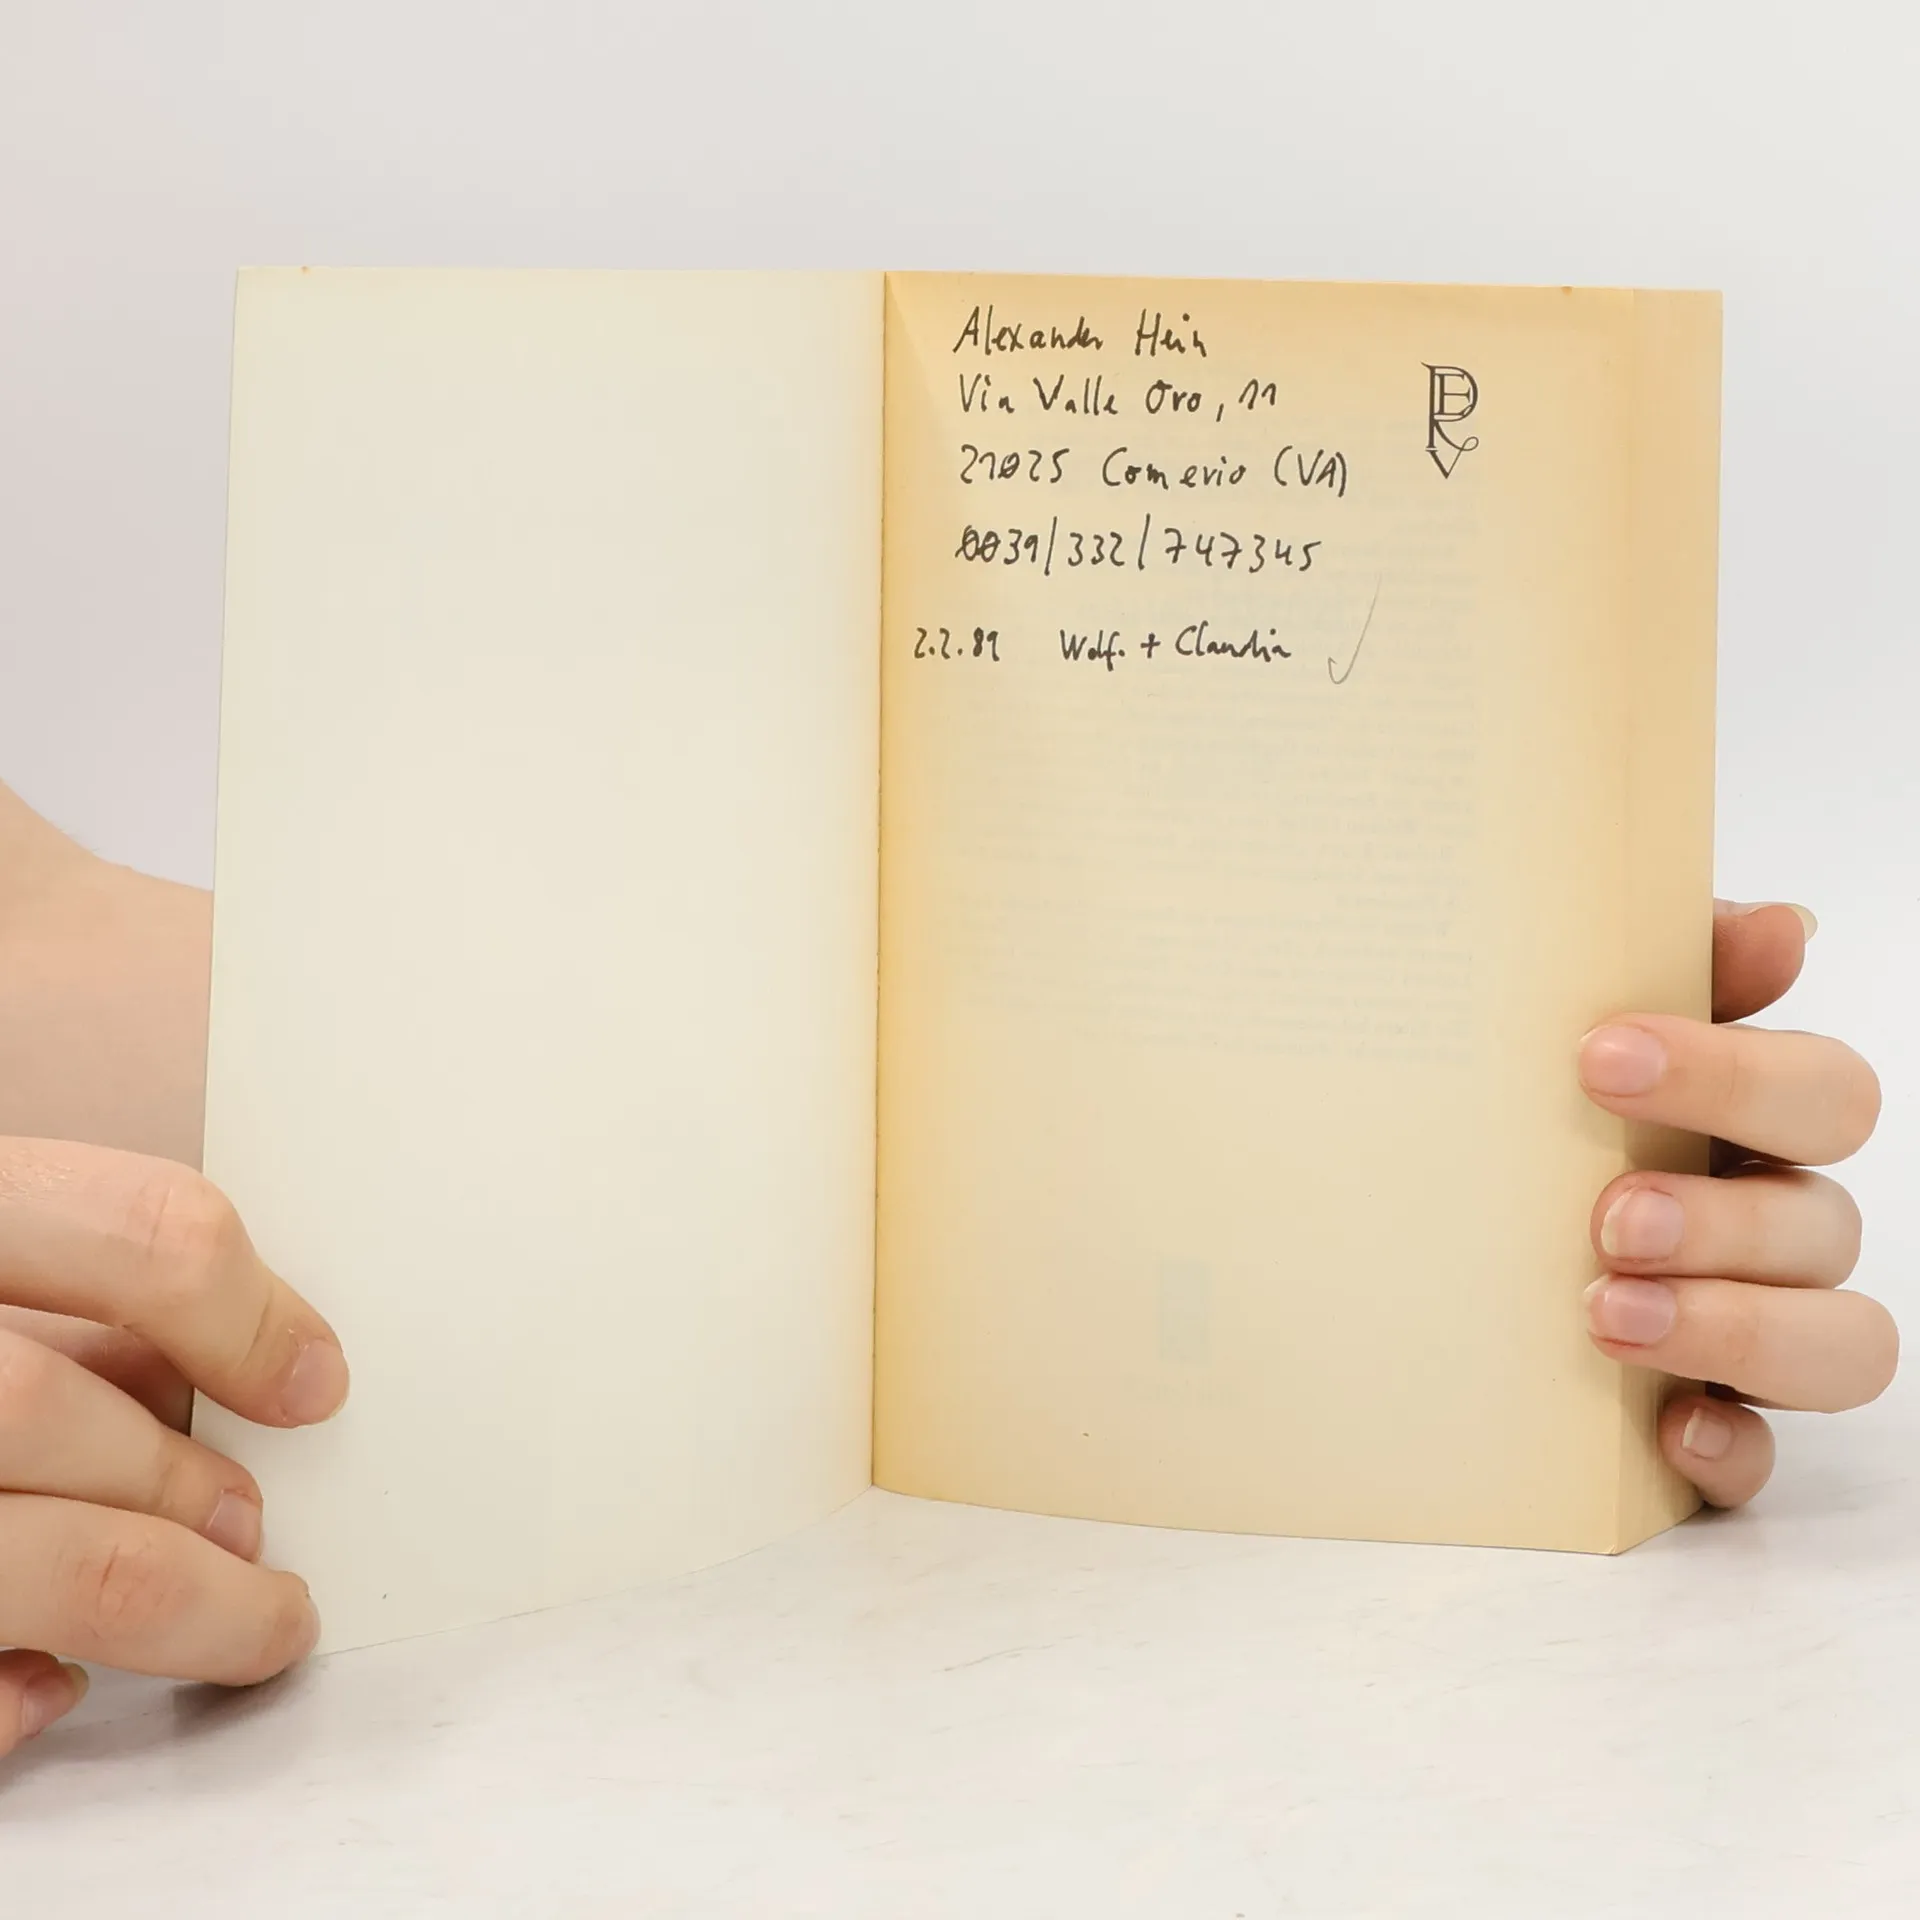 Alexander Hein
Via Valle Oro, 11
21025 Comerio (VA)
0039/332/747345
2.2.89 Wolf. + Claudia